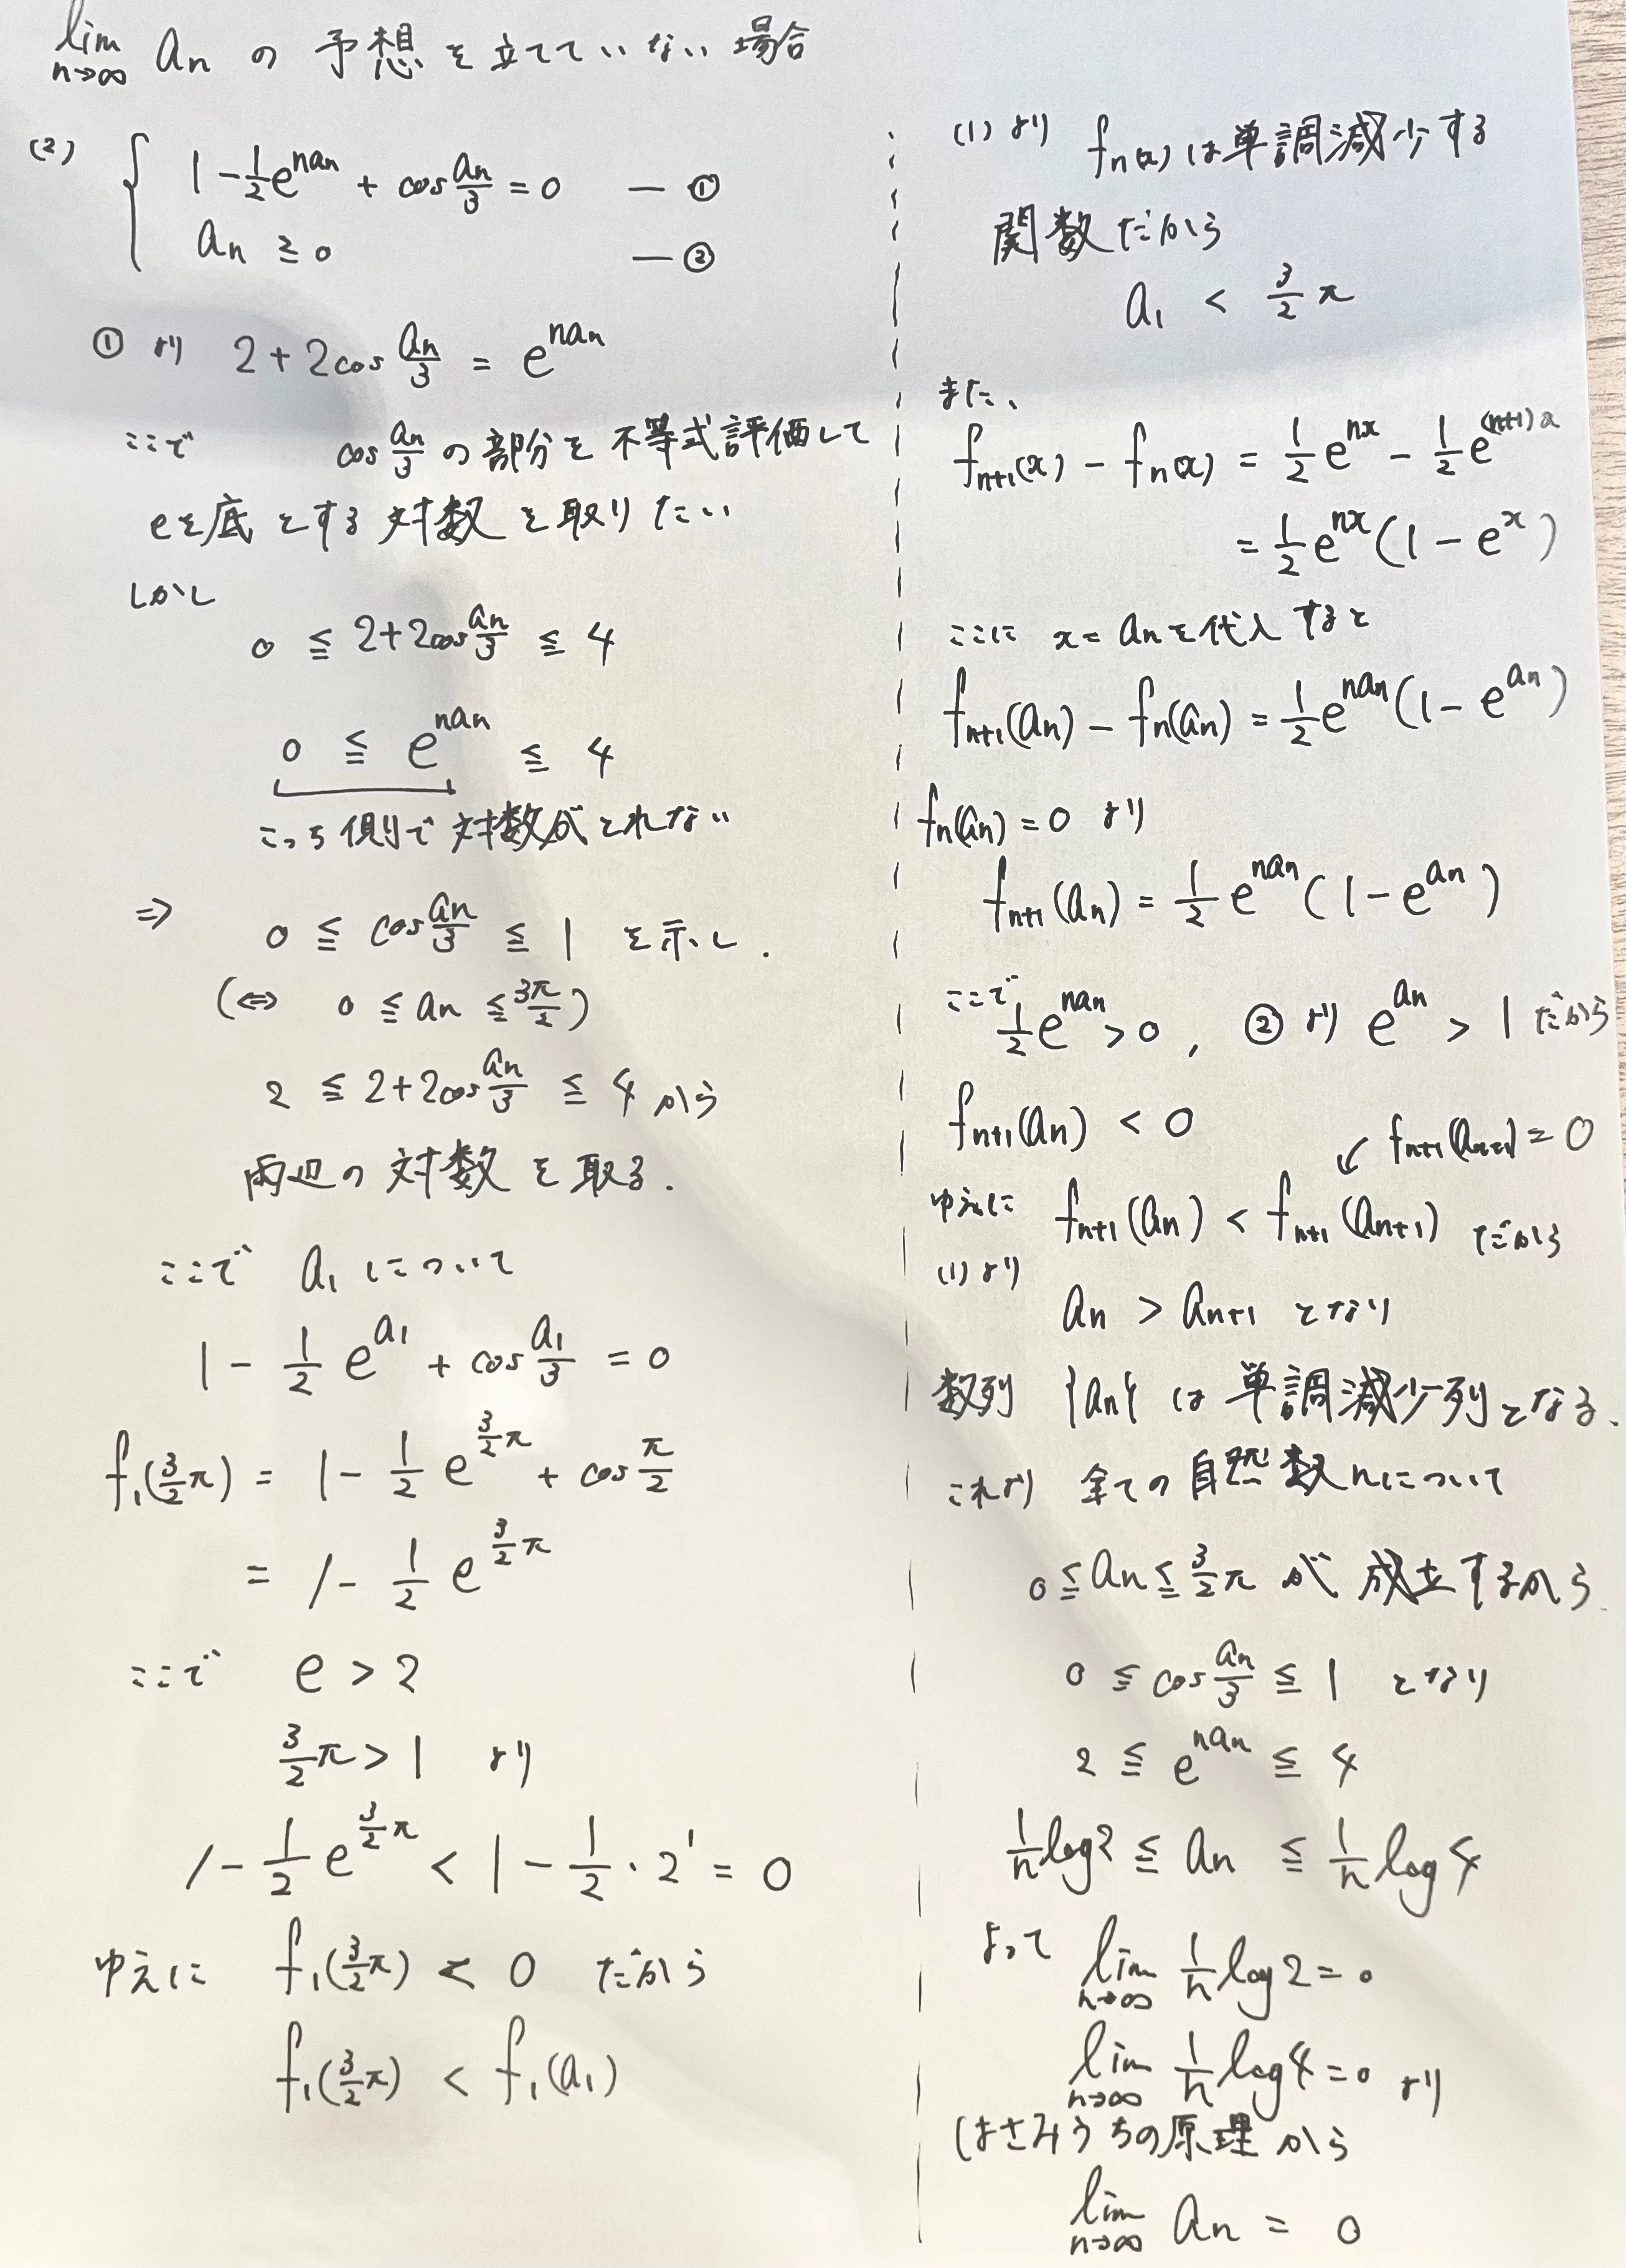 lim n→∞ an の予想を立てていない場合
(2) { 1 - 1/2 e^{nan} + cos an/3 = 0 — ①
an ≧ 0 — ②
①より 2 + 2cos an/3 = e^{nan}
ここで cos an/3 の部分を不等式評価して
eを底とする対数を取りたい
しかし
0 ≦ 2+2cos an/3 ≦ 4
0 ≦ e^{nan} ≦ 4
こっち側で対数がとれない
⇒ 0 ≦ cos an/3 ≦ 1 を示し.
(⇔ 0 ≦ an ≦ 3π/2)
2 ≦ 2+2cos an/3 ≦ 4 から
両辺の対数を取る.
ここで a1 について
1 - 1/2 e^{a1} + cos a1/3 = 0
f1(3/2 π) = 1 - 1/2 e^{3/2 π} + cos π/2
= 1 - 1/2 e^{3/2 π}
ここで e > 2
3/2 π > 1 より
1 - 1/2 e^{3/2 π} < 1 - 1/2 · 2^1 = 0
ゆえに f1(3/2 π) < 0 だから
f1(3/2 π) < f1(a1)
(1)より fn(x)は単調減少する
関数だから
a1 < 3/2 π
また、
fn+1(x) - fn(x) = 1/2 e^{nx} - 1/2 e^{(n+1)x}
= 1/2 e^{nx}(1 - e^x)
ここに x = an を代入すると
fn+1(an) - fn(an) = 1/2 e^{nan}(1 - e^{an})
fn(an) = 0 より
fn+1(an) = 1/2 e^{nan}(1 - e^{an})
ここで 1/2 e^{nan} > 0, ②より e^{an} > 1 だから
fn+1(an) < 0
↙ fn+1(an+1) = 0
ゆえに fn+1(an) < fn+1(an+1) だから
(1)より
an > an+1 となり
数列 {an} は単調減少列となる.
これより 全ての自然数nについて
0 ≦ an ≦ 3/2 π が成立するから.
0 ≦ cos an/3 ≦ 1 となり
2 ≦ e^{nan} ≦ 4
1/n log2 ≦ an ≦ 1/n log4
よって lim n→∞ 1/n log2 = 0
lim n→∞ 1/n log4 = 0 より
はさみうちの原理から
lim n→∞ an = 0